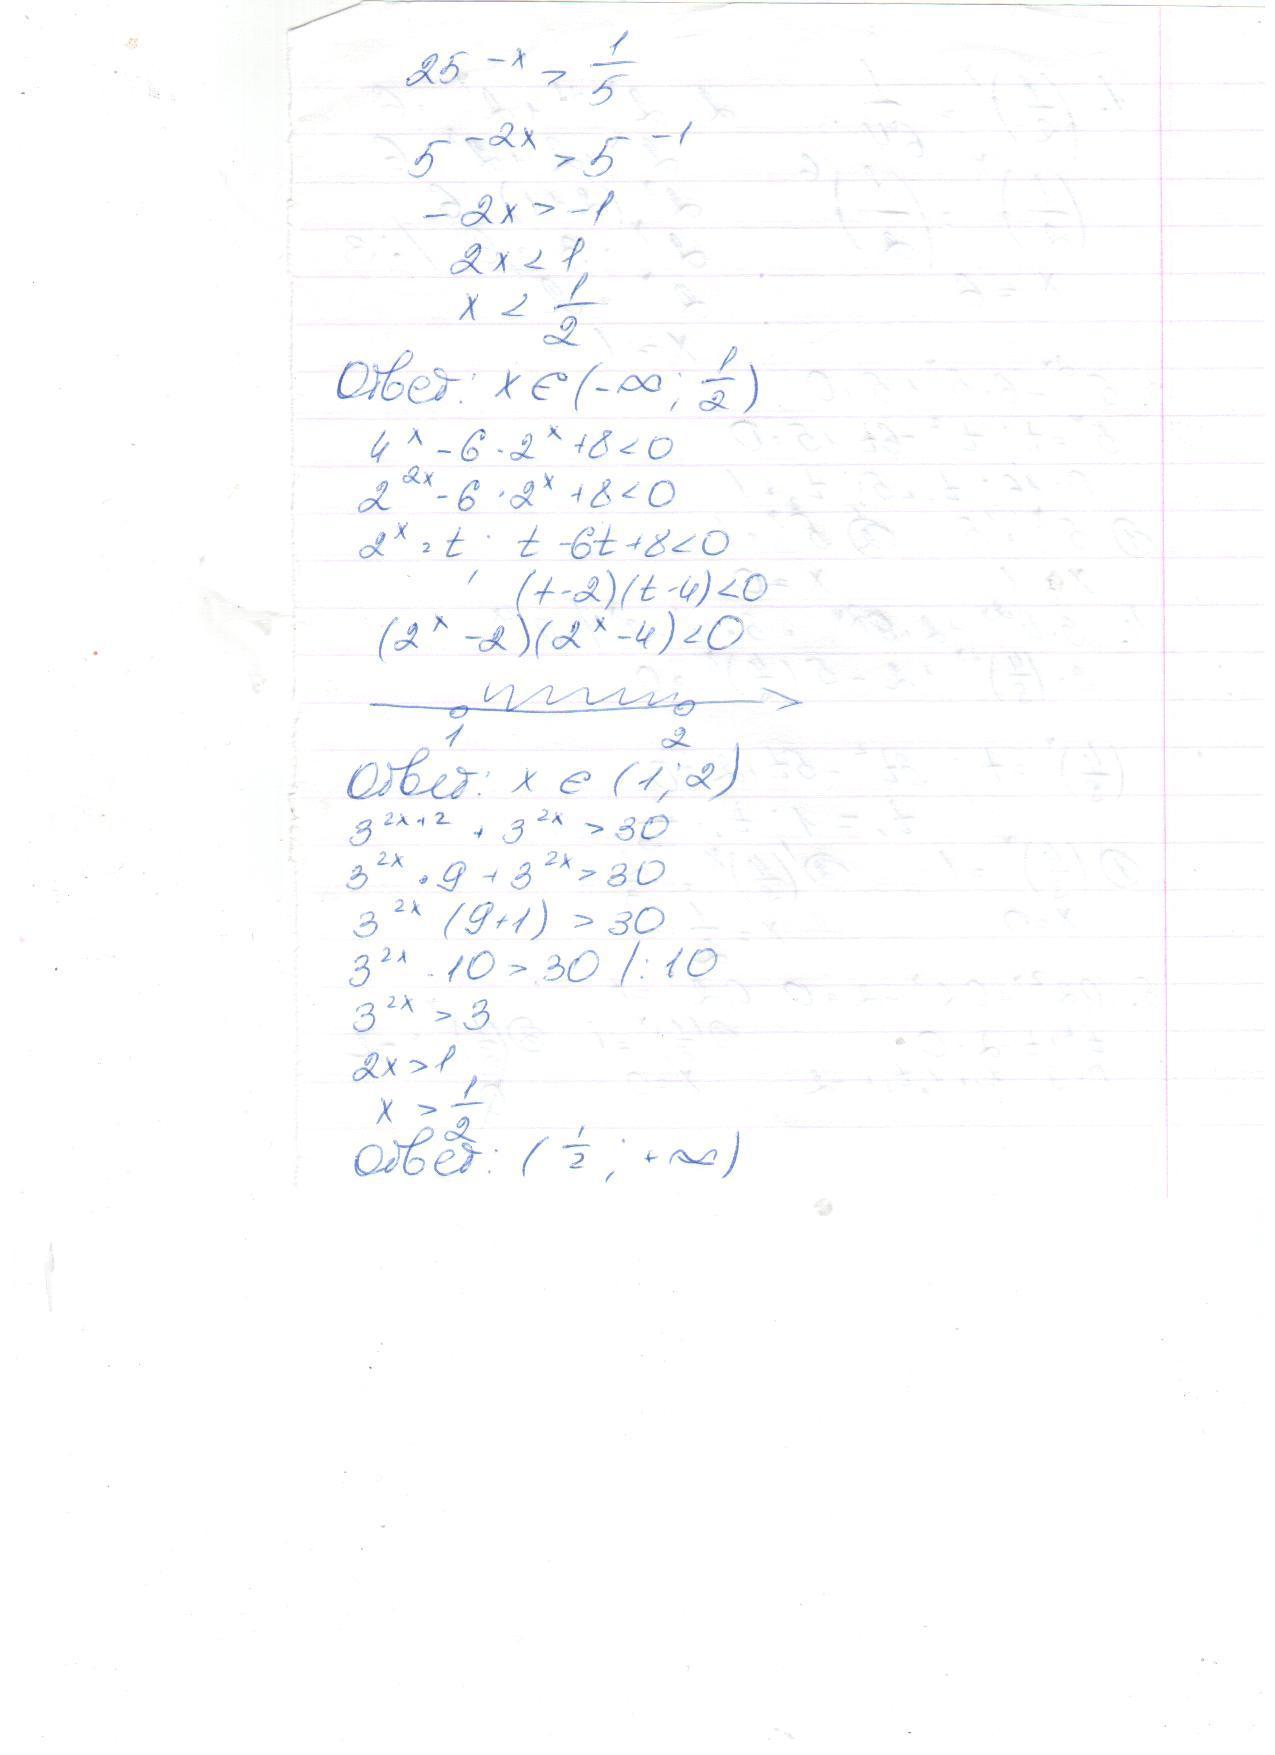 25^{-x} > \frac{1}{5}
5^{-2x} > 5^{-1}
-2x > -1
2x < 1
x < \frac{1}{2}
Ответ: x ∈ (-∞; \frac{1}{2})
4^x - 6 · 2^x + 8 < 0
2^{2x} - 6 · 2^x + 8 < 0
2^x = t; t - 6t + 8 < 0
(t-2)(t-4) < 0
(2^x - 2)(2^x - 4) < 0
1 2
Ответ: x ∈ (1; 2)
3^{2x+2} + 3^{2x} > 30
3^{2x} · 9 + 3^{2x} > 30
3^{2x} (9+1) > 30
3^{2x} · 10 > 30 /: 10
3^{2x} > 3
2x > 1
x > \frac{1}{2}
Ответ: (\frac{1}{2}; +∞)